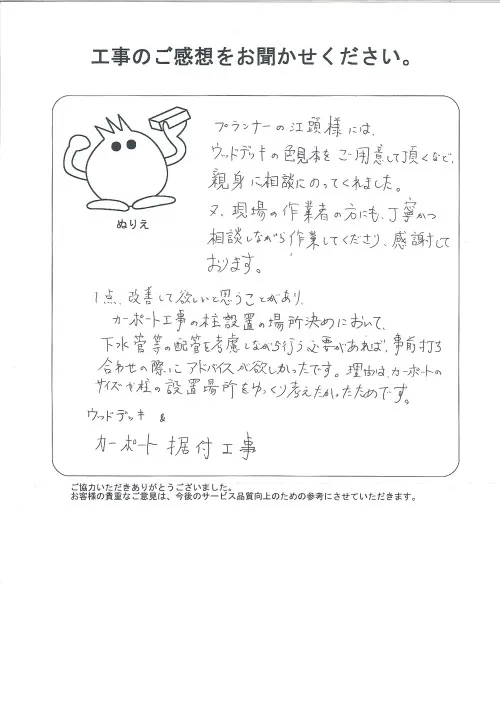 工事のご感想をお聞かせください。
プランナーの江頭様には、
ウッドデッキの色見本をご用意して頂くなど、
親身に相談にのってくれました。
ぬりえ
又、現場の作業者の方にも、丁寧かつ
相談しながら作業してくださり、感謝して
おります。
1点、改善して欲しいと思うことがあり、
カーポート工事の柱設置の場所決めにおいて、
下水管等の配管を考慮しながら行う必要があれば、事前打ち
合わせの際にアドバイスが欲しかったです。理由は、カーポートの
サイズや柱の設置場所をゆっくり考えたかったためです。
ウッドデッキ &
カーポート 据付工事
ご協力いただきありがとうございました。
お客様の貴重なご意見は、今後のサービス品質向上のための参考にさせていただきます。